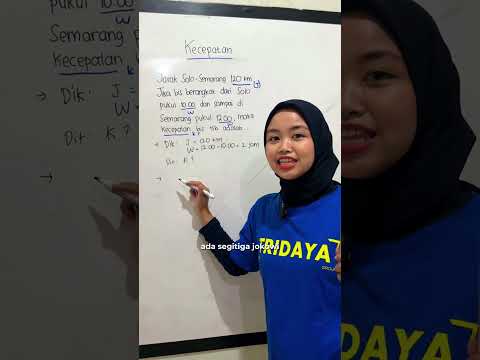 Kecepatan
Jarak Solo-Semarang 120 km
(J)
Jika bis berangkat dari Solo
pukul 10.00 dan sampai di
W
Semarang pukul 12.00, maka
Kecepatan bis tsb adalah
K
→ Dik: J = 120 km
W = 12.00 - 10.00 = 2 jam
Dit: K?
→
ada segitiga jokowi
TRIDAYA